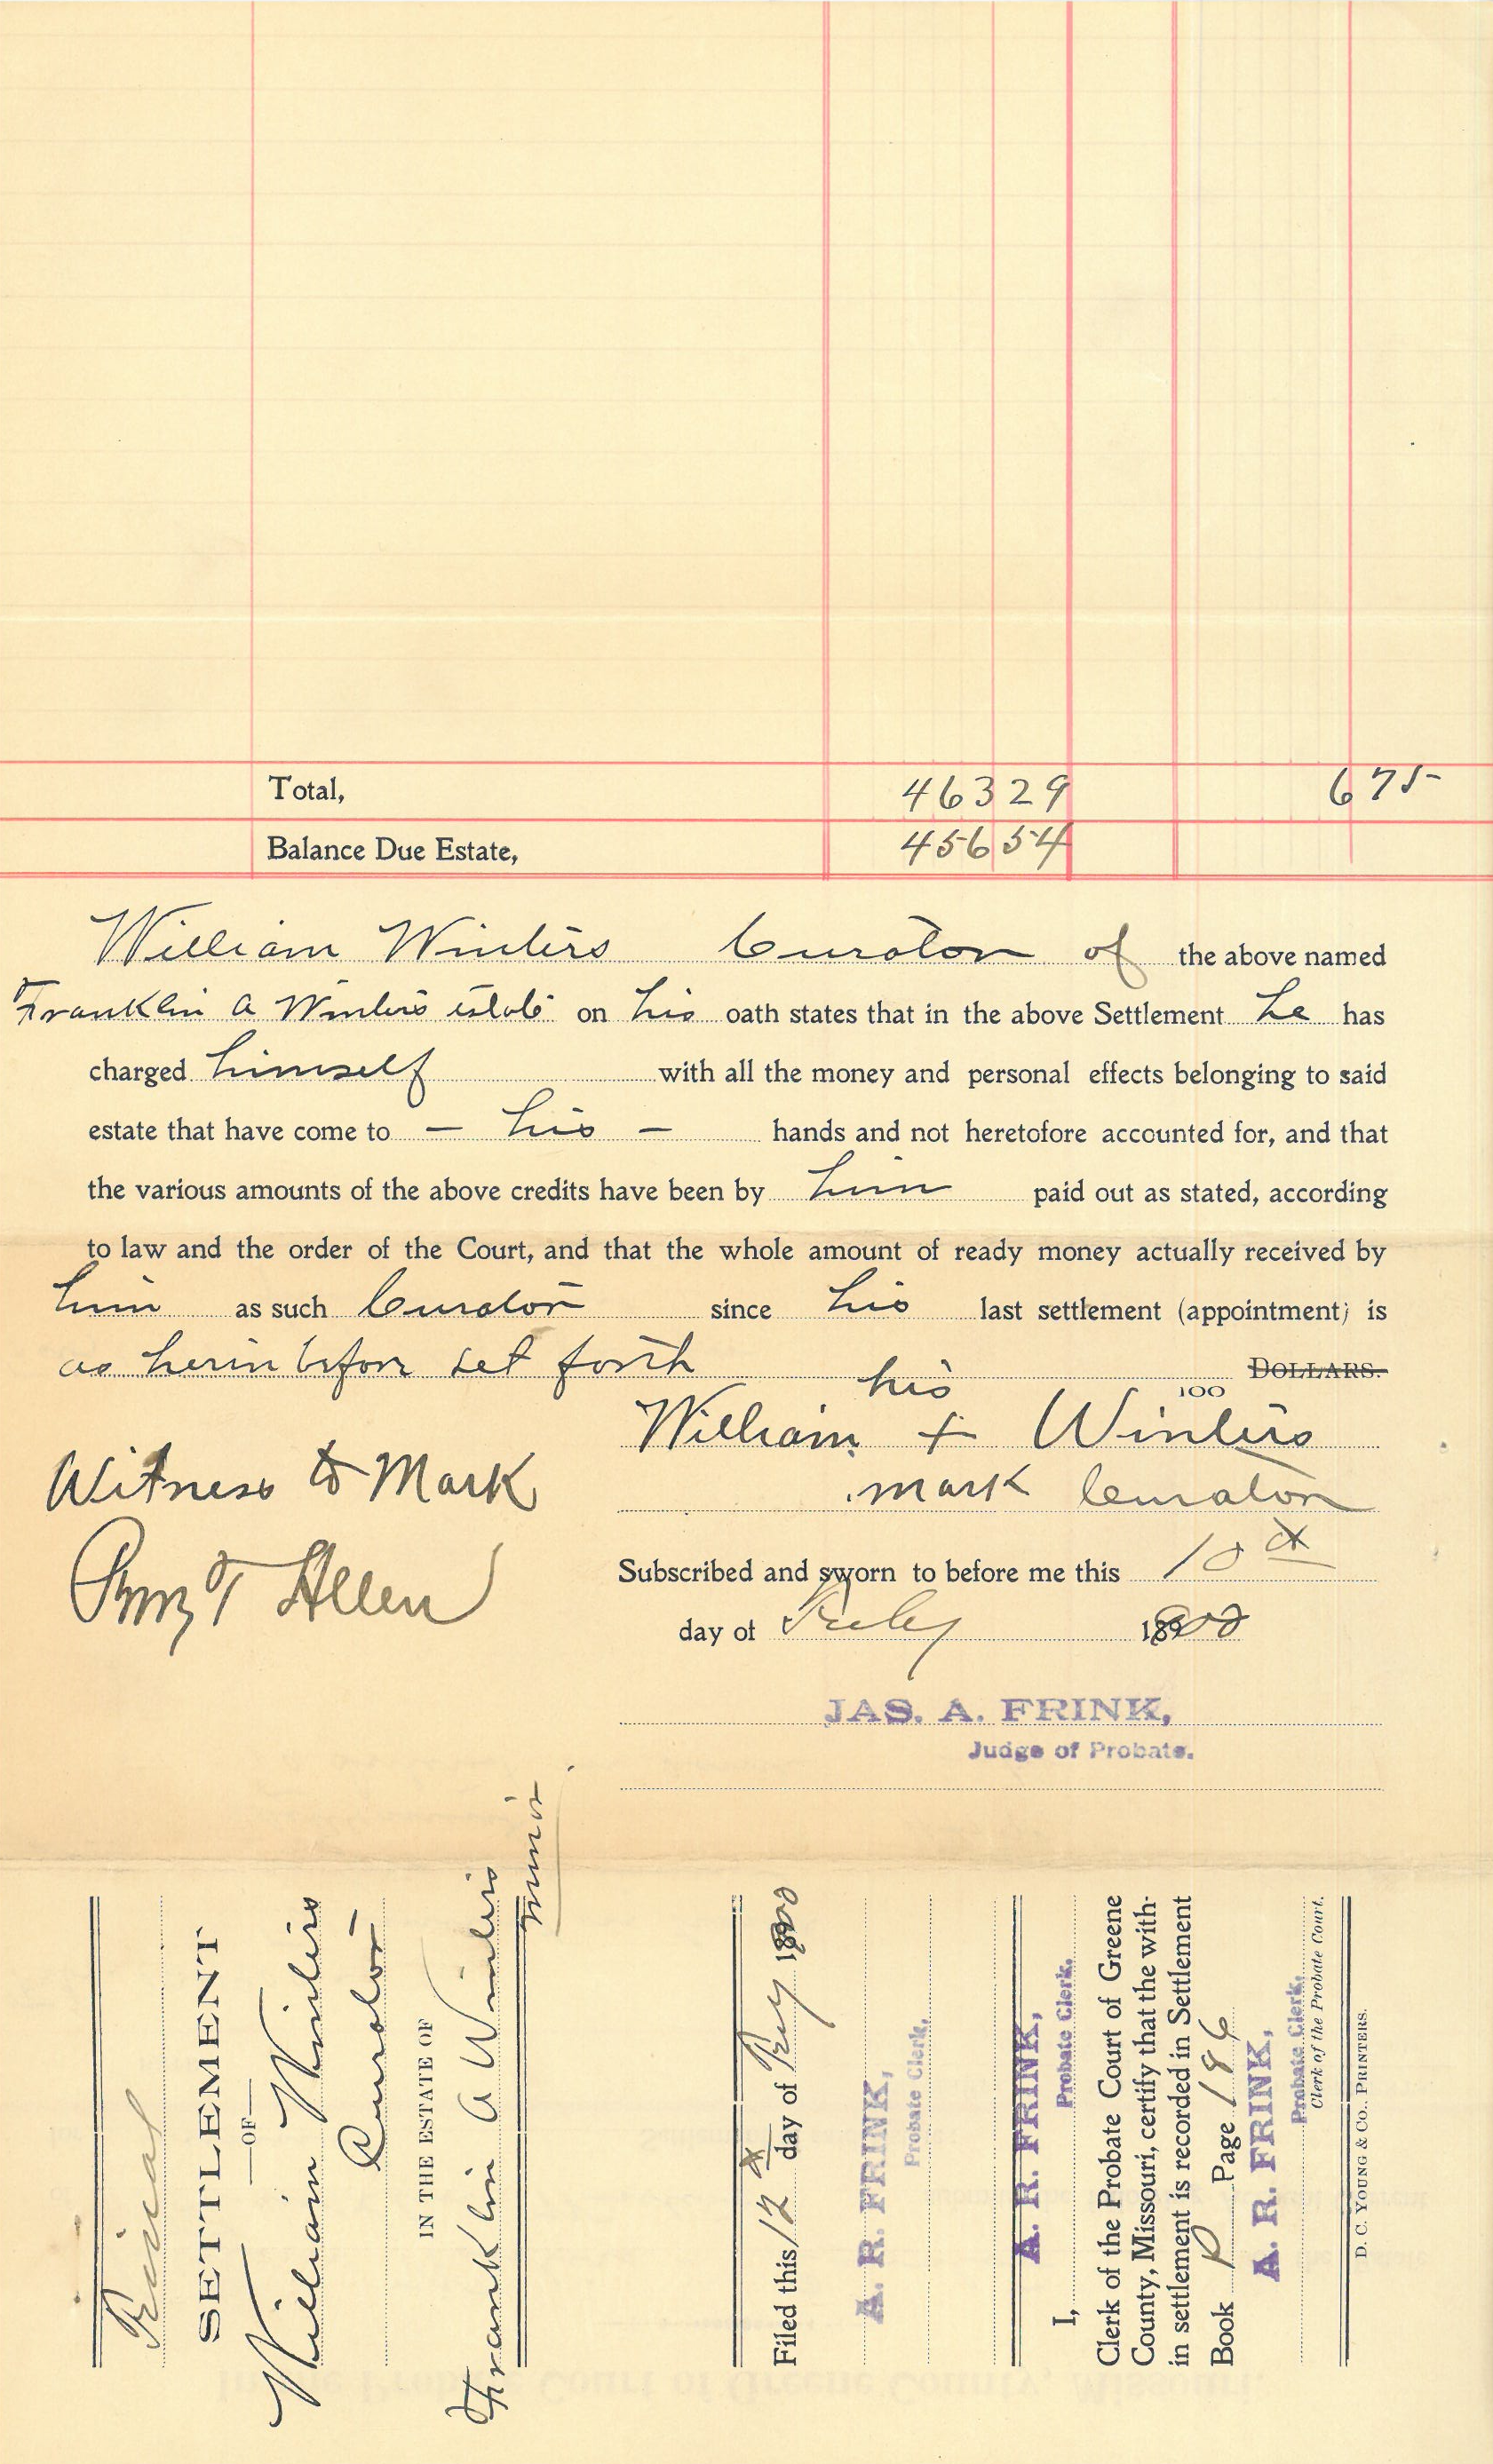 Total, 463 29 6 75
Balance Due Estate, 456 54
William Winters Curator of the above named
Franklin A Winters estate on his oath states that in the above Settlement he has
charged himself with all the money and personal effects belonging to said
estate that have come to — his — hands and not heretofore accounted for, and that
the various amounts of the above credits have been by him paid out as stated, according
to law and the order of the Court, and that the whole amount of ready money actually received by
him as such Curator since his last settlement (appointment) is
as herin before set forth 100 DOLLARS.
his
William + Winters
mark Curator
Witness to Mark
Allen
Subscribed and sworn to before me this 10th
day of 1900
JAS. A. FRINK,
Judge of Probate.
Final
SETTLEMENT
—OF—
William Winters
Curator
IN THE ESTATE OF
Franklin A Winters
minor
Filed this 12th day of 1900
A. R. FRINK,
Probate Clerk,
A. R. FRINK,
I, Probate Clerk,
Clerk of the Probate Court of Greene
County, Missouri, certify that the with-
in settlement is recorded in Settlement
Book Page 196
A. R. FRINK,
Probate Clerk,
Clerk of the Probate Court.
D. C. YOUNG & CO., PRINTERS.